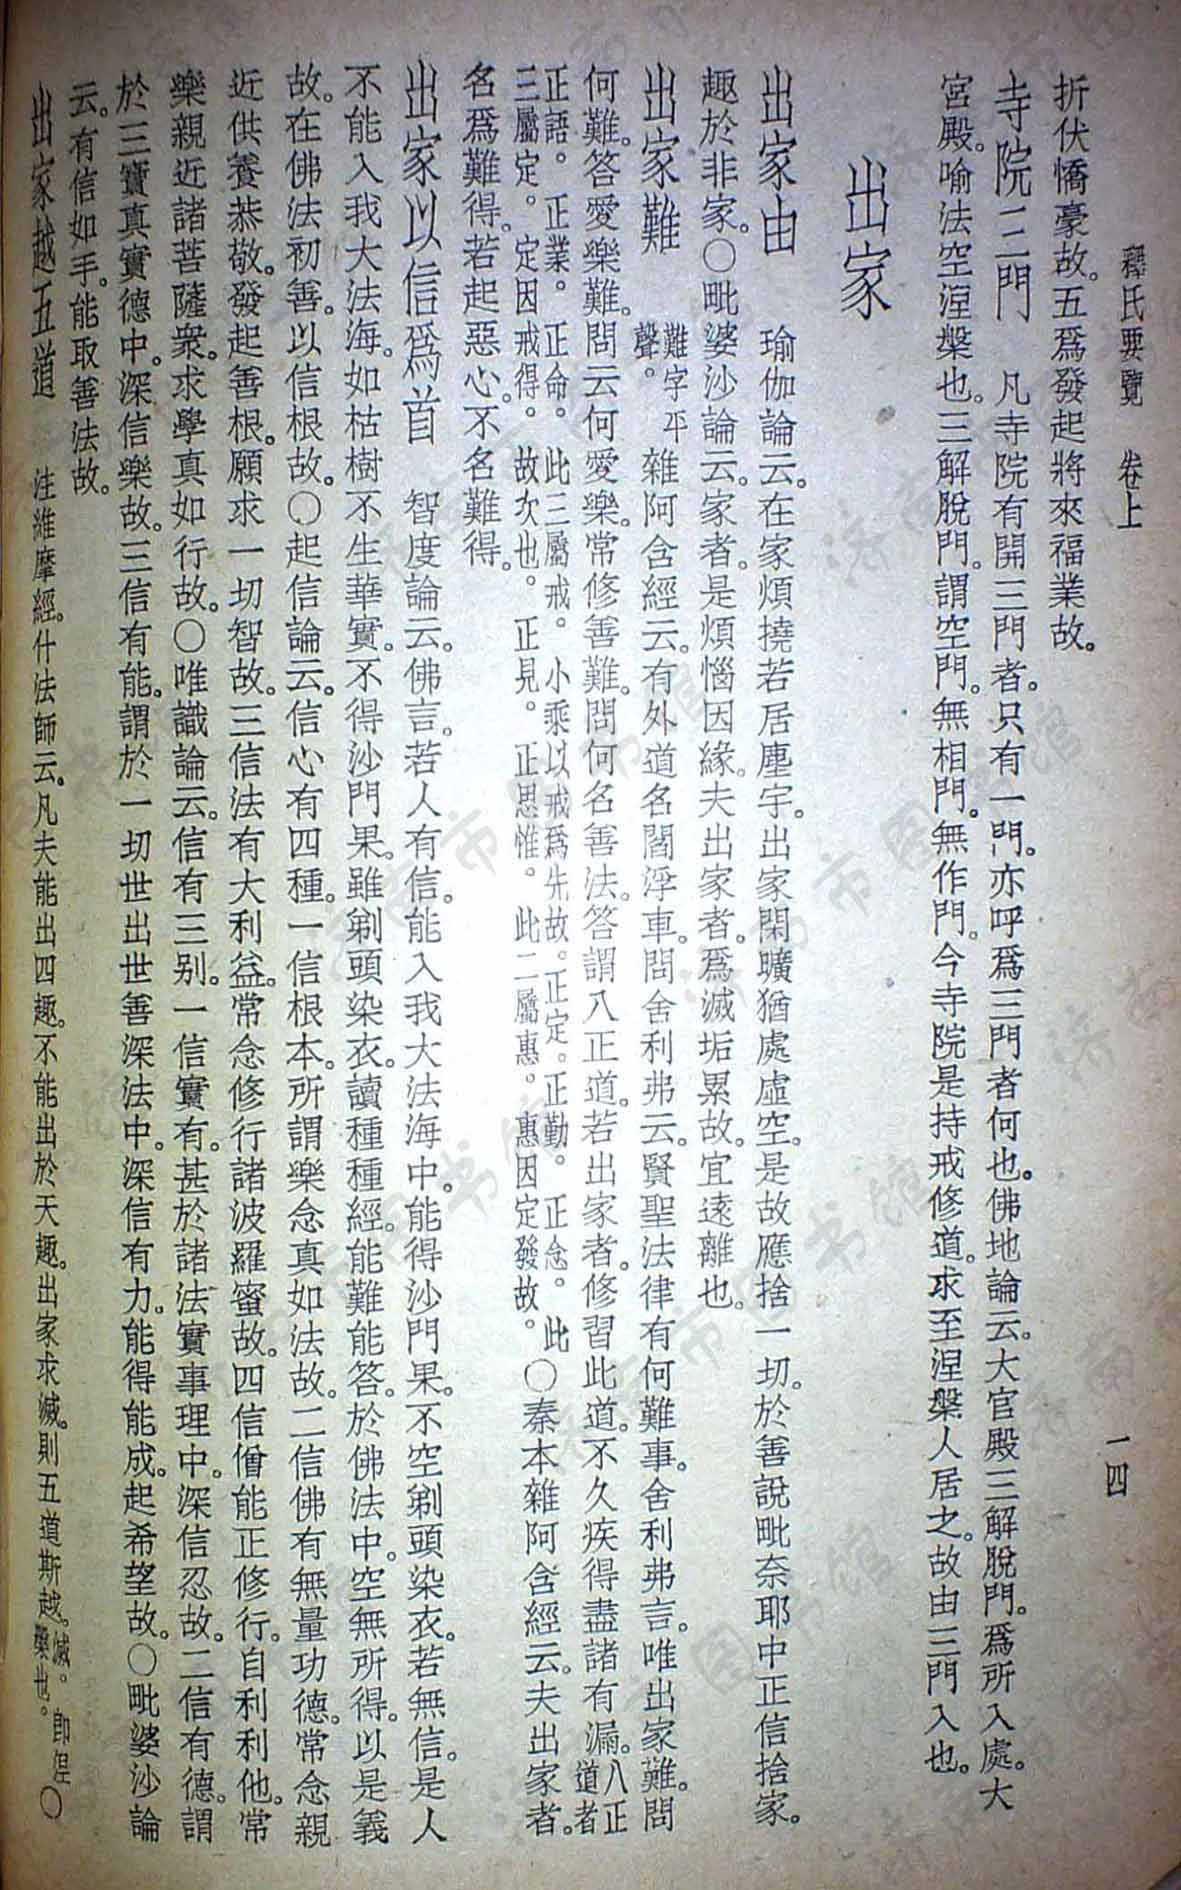 釋氏要覽　卷上　一四
折伏憍豪故。五爲發起將來福業故。
寺院三門　凡寺院有開三門者。只有一門。亦呼爲三門者何也。佛地論云。大宮殿三解脫門。爲所入處。大
宮殿。喻法空涅槃也。三解脫門。謂空門。無相門。無作門。今寺院是持戒修道。求至涅槃人居之。故由三門入也。
出家
出家由　瑜伽論云。在家煩撓若居塵宇。出家閑曠猶處虛空。是故應捨一切。於善說毗奈耶中正信捨家。
趣於非家。〇毗婆沙論云。家者。是煩惱因緣。夫出家者。爲滅垢累故。宜遠離也。
出家難　難字平聲。　雜阿含經云。有外道名閻浮車。問舍利弗云。賢聖法律有何難事。舍利弗言。唯出家難。問
何難。答愛樂難。問云何愛樂。常修善難。問何名善法。答謂八正道。若出家者。修習此道。不久疾得盡諸有漏。八正道者
正語。正業。正命。此三屬戒。小乘以戒爲先故。正定。正勤。正念。此
三屬定。定因戒得。故次也。正見。正思惟。此二屬惠。惠因定發故。〇秦本雜阿含經云。夫出家者。
名爲難得。若起惡心。不名難得。
出家以信爲首　智度論云。佛言。若人有信。能入我大法海中。能得沙門果。不空剃頭染衣。若無信。是人
不能入我大法海。如枯樹不生華實。不得沙門果。雖剃頭染衣。讀種種經。能難能答。於佛法中。空無所得。以是義
故。在佛法初善。以信根故。〇起信論云。信心有四種。一信根本。所謂樂念真如法故。二信佛有無量功德。常念親
近供養恭敬。發起善根。願求一切智故。三信法有大利益。常念修行諸波羅蜜故。四信僧能正修行。自利利他。常
樂親近諸菩薩衆。求學真如行故。〇唯識論云。信有三別。一信實有。甚於諸法實事理中。深信忍故。二信有德。謂
於三寶真實德中。深信樂故。三信有能。謂於一切世出世善深法中。深信有力。能得能成。起希望故。〇毗婆沙論
云。有信如手。能取善法故。
出家越五道　注維摩經。什法師云。凡夫能出四趣。不能出於天趣。出家求滅。則五道斯越。滅。即涅槃也。〇